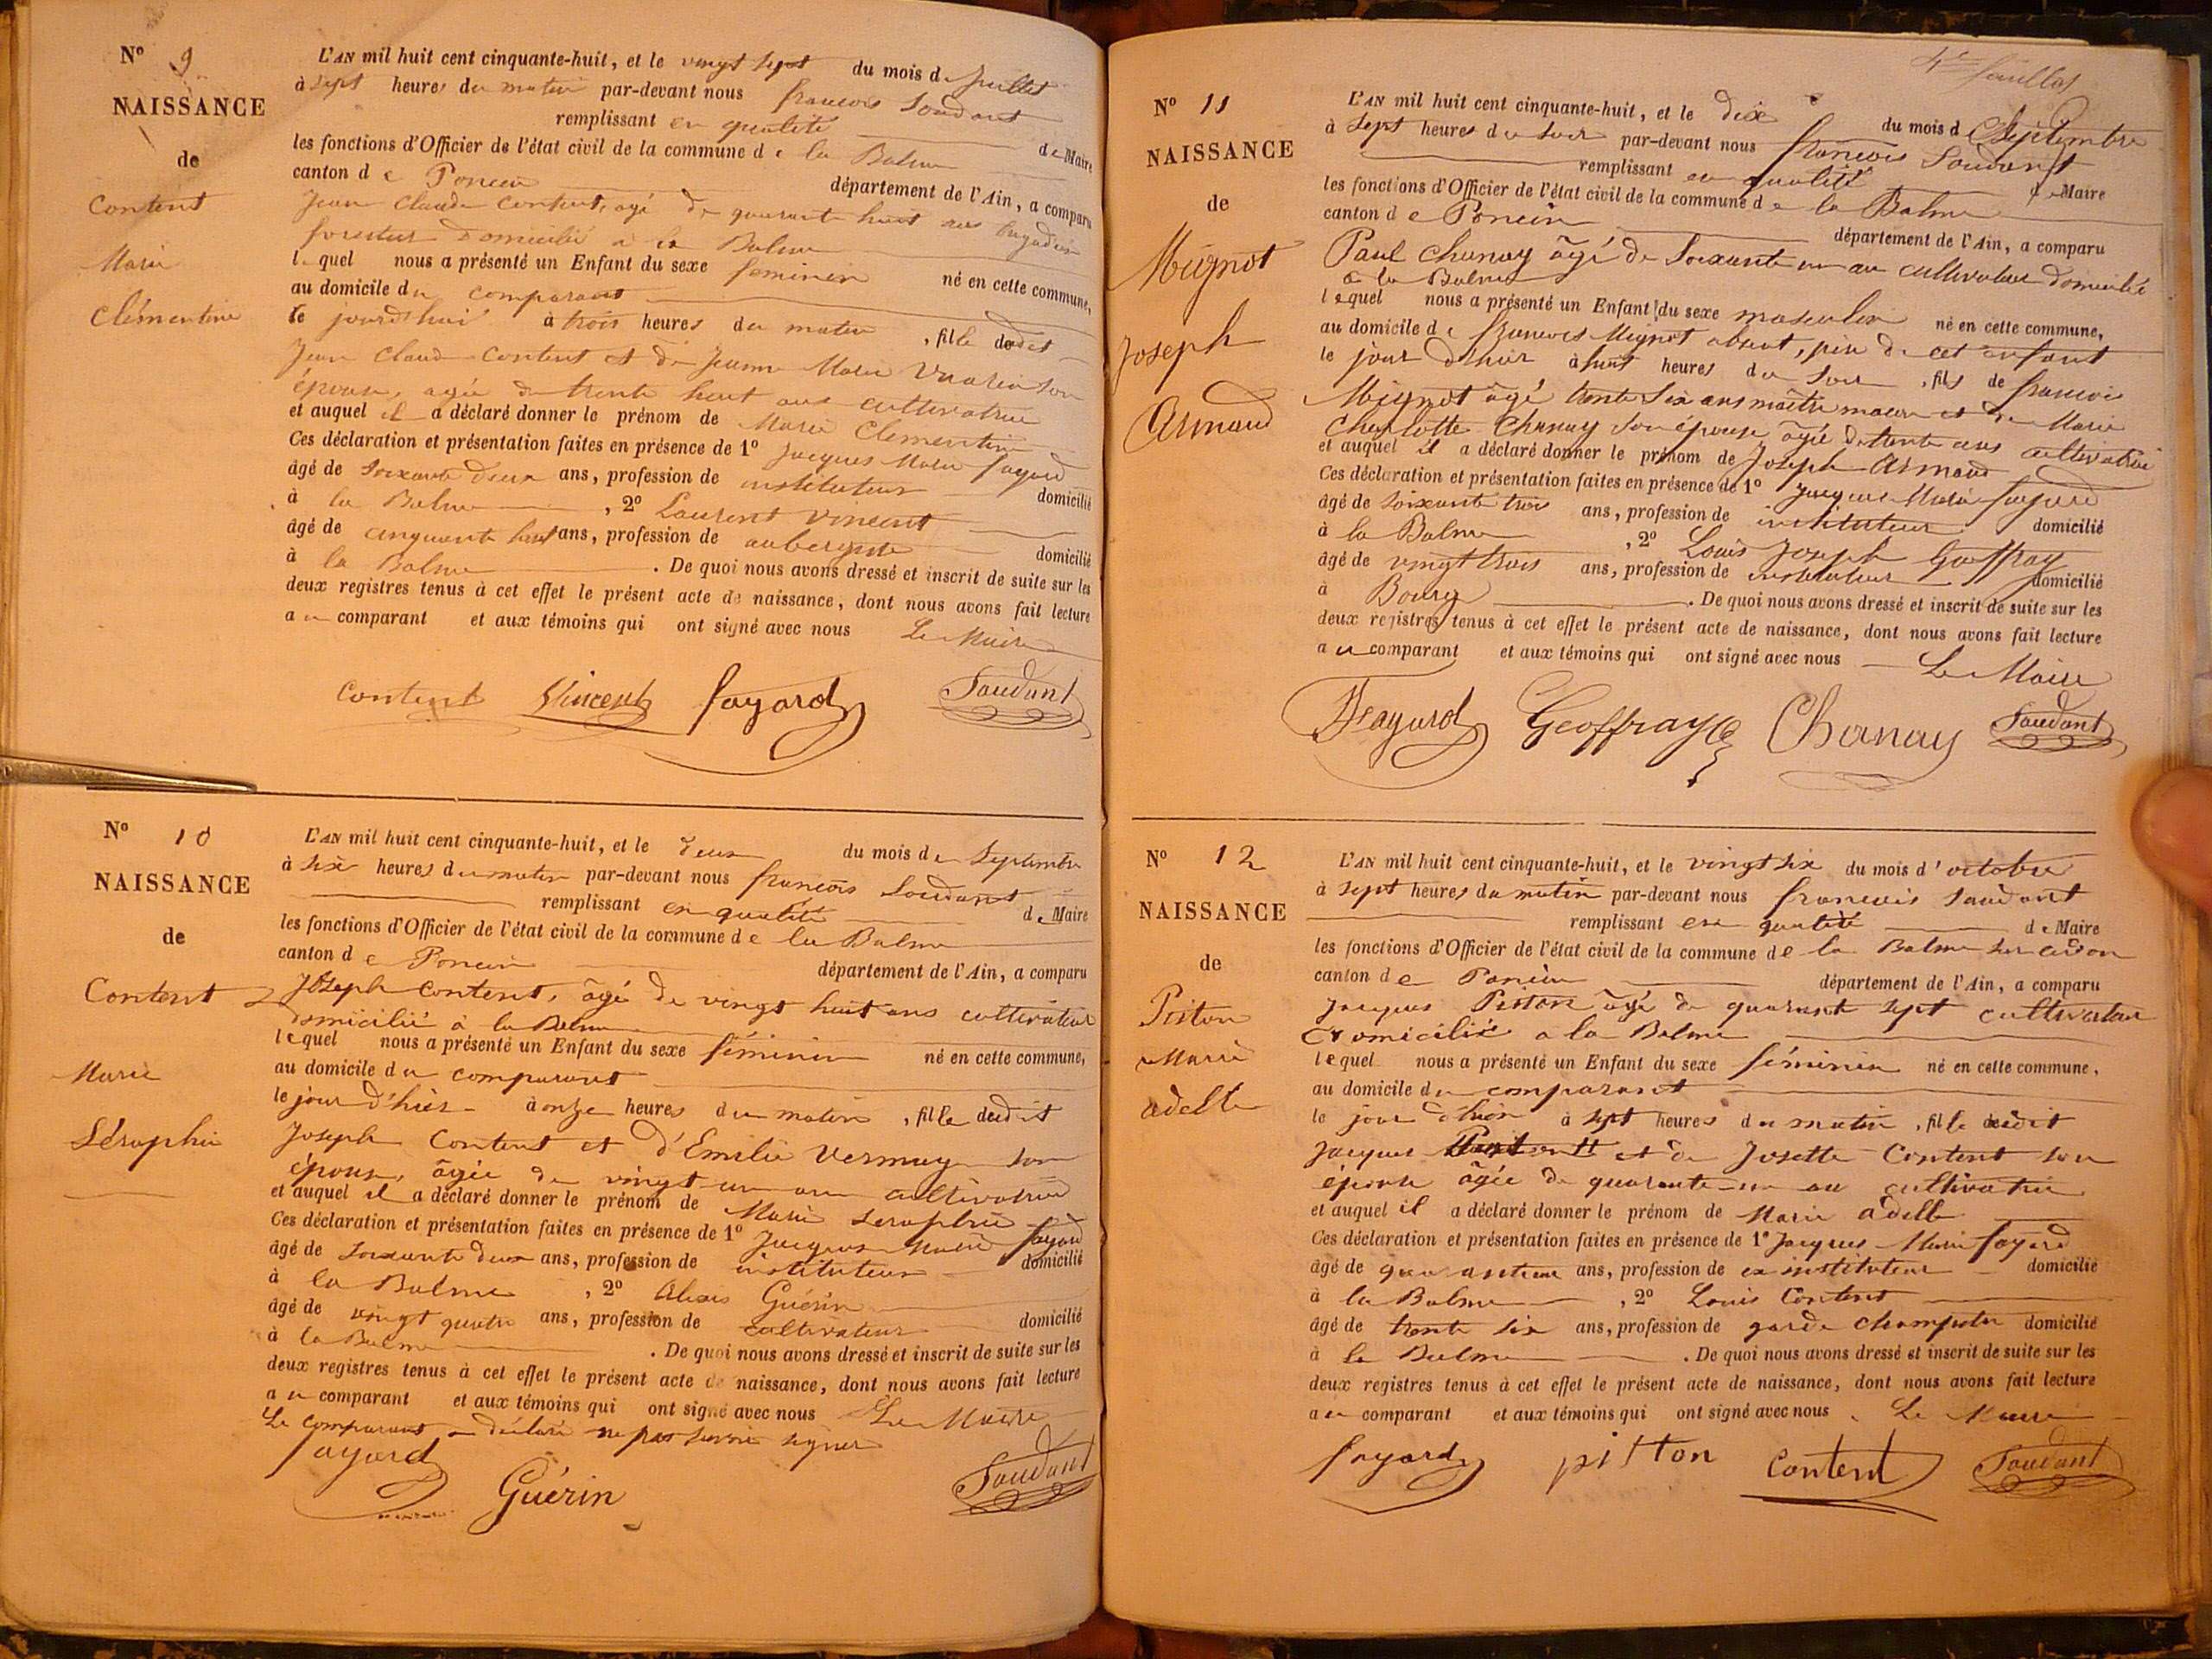 N° 9
NAISSANCE
de
Content
Marie
Clémentine
L'AN mil huit cent cinquante-huit, et le vingt sept du mois de Juillet
à sept heures du matin par-devant nous françois Soudant
remplissant en qualité de Maire
les fonctions d'Officier de l'état civil de la commune de la Balme
canton de Poncin département de l'Ain, a comparu
Jean Claude Content, agé de quarante huit ans brigadier
forestier domicilié a la Balme
lequel nous a présenté un Enfant du sexe feminin né en cette commune,
au domicile du comparant
le jourd'hui à trois heures du matin, fille dudit
Jean Claude Content et de Jeanne Marie son
épouse, agée de trente huit ans cultivatrice
et auquel il a déclaré donner le prénom de Marie Clementine
Ces déclaration et présentation faites en présence de 1° Jacques Marie fayard
âgé de soixante deux ans, profession de instituteur domicilié
à la Balme, 2° Laurent Vincent
âgé de cinquante huit ans, profession de aubergiste domicilié
à la Balme. De quoi nous avons dressé et inscrit de suite sur les
deux registres tenus à cet effet le présent acte de naissance, dont nous avons fait lecture
au comparant et aux témoins qui ont signé avec nous Le Maire
Content Vincent fayard Soudant
N° 10
NAISSANCE
de
Content
Marie
Séraphie
L'AN mil huit cent cinquante-huit, et le deux du mois de Septembre
à six heures du matin par-devant nous françois Soudant
remplissant en qualité de Maire
les fonctions d'Officier de l'état civil de la commune de la Balme
canton de Poncin département de l'Ain, a comparu
Joseph Content, âgé de vingt huit ans cultivateur
domicilié à la Balme
lequel nous a présenté un Enfant du sexe féminin né en cette commune,
au domicile du comparant
le jour d'hier à onze heures du matin, fille dudit
Joseph Content et d'Emilie Vermay son
épouse, âgée de vingt un ans cultivatrice
et auquel il a déclaré donner le prénom de Marie Seraphie
Ces déclaration et présentation faites en présence de 1° Jacques Marie fayard
âgé de soixante deux ans, profession de instituteur domicilié
à la Balme, 2° Alexis Guérin
âgé de vingt quatre ans, profession de cultivateur domicilié
à la Balme. De quoi nous avons dressé et inscrit de suite sur les
deux registres tenus à cet effet le présent acte de naissance, dont nous avons fait lecture
au comparant et aux témoins qui ont signé avec nous Le Maire
Le comparant a déclaré ne pas savoir signer
fayard Guérin Soudant
4e feuillet
N° 11
NAISSANCE
de
Mignot
Joseph
Armand
L'AN mil huit cent cinquante-huit, et le dix du mois d Septembre
à sept heures du soir par-devant nous françois Soudant
remplissant en qualité de Maire
les fonctions d'Officier de l'état civil de la commune de la Balme
canton de Poncin département de l'Ain, a comparu
Paul Chanay âgé de soixante un an cultivateur domicilié
a la Balme
lequel nous a présenté un Enfant du sexe masculin né en cette commune,
au domicile de françois Mignot absent, père de cet enfant
le jour d'hier à huit heures du soir, fils de françois
Mignot âgé trente six ans maître maçon et de Marie
Charlotte Chanay son épouse âgée de trente ans cultivatrice
et auquel il a déclaré donner le prénom de Joseph Armand
Ces déclaration et présentation faites en présence de 1° Jacques Marie fayard
âgé de soixante trois ans, profession de instituteur domicilié
à la Balme, 2° Louis Joseph Geoffray
âgé de vingt trois ans, profession de instituteur domicilié
à Bourg. De quoi nous avons dressé et inscrit de suite sur les
deux registres tenus à cet effet le présent acte de naissance, dont nous avons fait lecture
au comparant et aux témoins qui ont signé avec nous Le Maire
Fayard Geoffray Chanay Soudant
N° 12
NAISSANCE
de
Piston
Marie
adelle
L'AN mil huit cent cinquante-huit, et le vingt six du mois d'octobre
à sept heures du matin par-devant nous françois Soudant
remplissant en qualité de Maire
les fonctions d'Officier de l'état civil de la commune de la Balme sur cerdon
canton de Poncin département de l'Ain, a comparu
Jacques Piston âgé de quarante sept cultivateur
domicilié a la Balme
lequel nous a présenté un Enfant du sexe féminin né en cette commune,
au domicile du comparant
le jour d'hier à sept heures du matin, fille dudit
Jacques et de Josette Content son
épouse âgée de quarante un an cultivatrice
et auquel il a déclaré donner le prénom de Marie adelle
Ces déclaration et présentation faites en présence de 1° Jacques Marie fayard
âgé de ans, profession de ex instituteur domicilié
à la Balme, 2° Louis Content
âgé de trente six ans, profession de garde champetre domicilié
à la Balme. De quoi nous avons dressé et inscrit de suite sur les
deux registres tenus à cet effet le présent acte de naissance, dont nous avons fait lecture
au comparant et aux témoins qui ont signé avec nous. Le Maire
fayard pitton Content Soudant